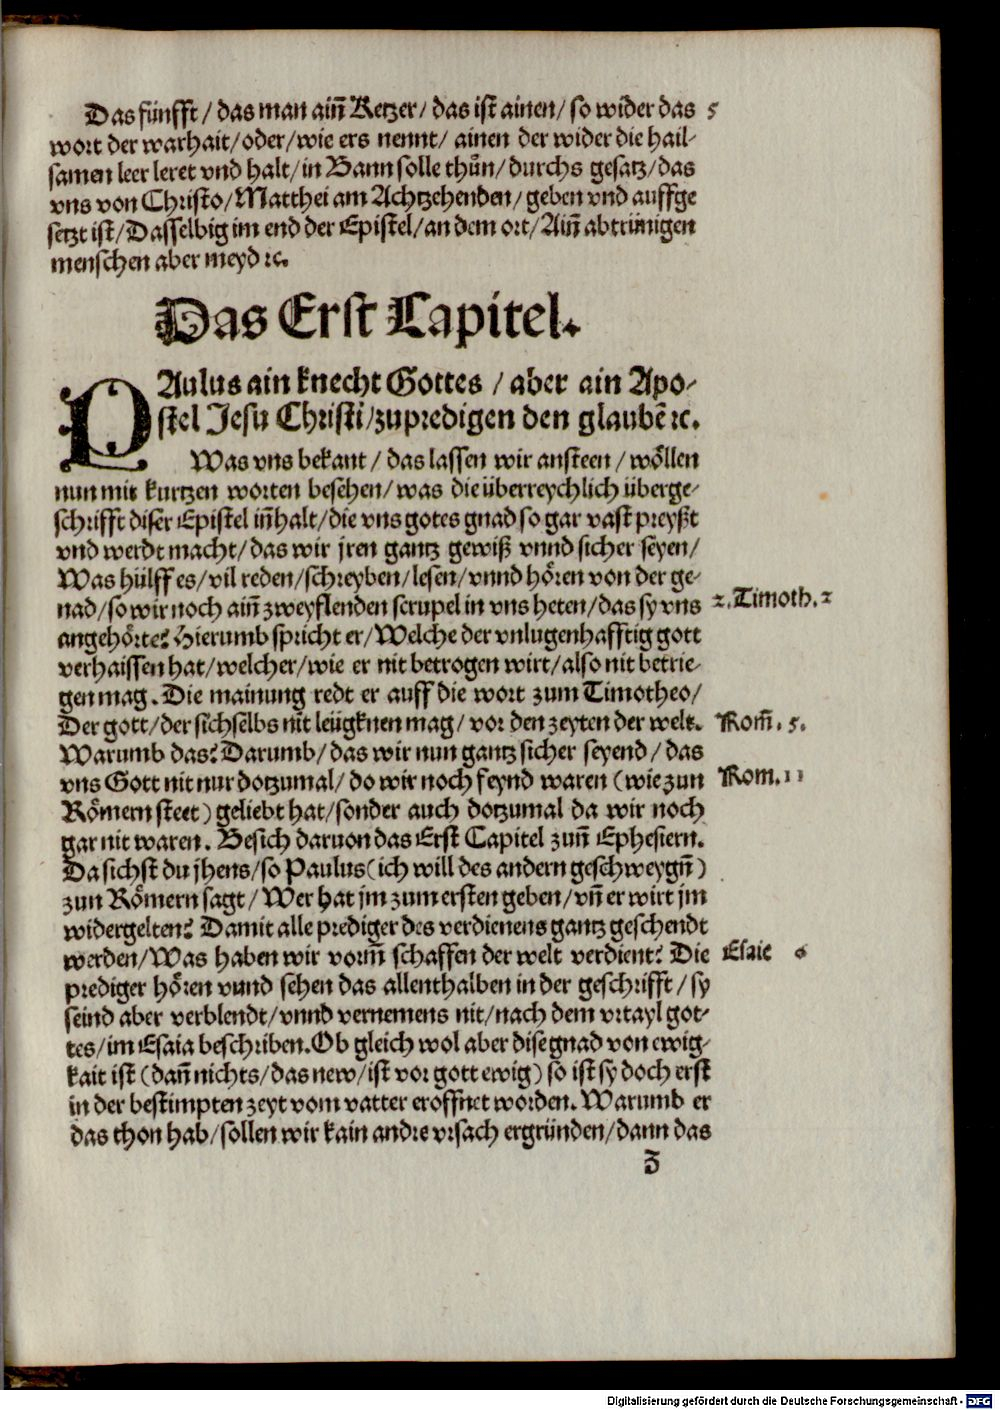 Das fünfft / das man aiñ Ketzer / das ist ainen / so wider das 5
wort der warhait / oder / wie ers nennt / ainen der wider die hail-
samen leer leret vnd halt / in Bann solle thůn / durchs gesatz / das
vns von Christo / Matthei am Achtzehenden / geben vnd auffge
setzt ist / Dasselbig im end der Epistel / an dem ort / Aiñ abtrünigen
menschen aber meyd ꝛc.
Das Erst Capitel.
PAulus ain knecht Gottes / aber ain Apo-
stel Jesu Christi / zupredigen den glaubē ꝛc.
Was vns bekant / das lassen wir ansteen / wöllen
nun mit kurtzen worten besehen / was die überreychlich überge-
schrifft diser Epistel iñhalt / die vns gotes gnad so gar vast preyßt
vnd werdt macht / das wir jren gantz gewiß vnnd sicher seyen /
Was hülff es / vil reden / schreyben / lesen / vnnd hören von der ge-
nad / so wir noch aiñ zweyflenden scrupel in vns heten / das sy vns 2. Timoth. 2
angehörte? Hierumb spricht er / Welche der vnlugenhafftig gott
verhaissen hat / welcher / wie er nit betrogen wirt / also nit betrie-
gen mag. Die mainung redt er auff die wort zum Timotheo /
Der gott / der sichselbs nit leügknen mag / vor den zeyten der welt. Rom̃. 5.
Warumb das? Darumb / das wir nun gantz sicher seyend / das
vns Gott nit nur dotzumal / do wir noch feynd waren (wie zun Rom. 11
Römern steet) geliebt hat / sonder auch dotzumal da wir noch
gar nit waren. Besich daruon das Erst Capitel zuñ Ephesiern.
Da sichst du jhens / so Paulus (ich will des andern geschweygñ)
zun Römern sagt / Wer hat jm zum ersten geben / vñ er wirt jm
widergelten? Damit alle prediger des verdienens gantz geschendt
werden / Was haben wir vorm̃ schaffen der welt verdient? Die Esaie 6
prediger hören vnnd sehen das allenthalben in der geschrifft / sy
seind aber verblendt / vnnd vernemens nit / nach dem vrtayl got-
tes / im Esaia beschriben. Ob gleich wol aber dise gnad von ewig-
kait ist (dañ nichts / das new / ist vor gott ewig) so ist sy doch erst
in der bestimpten zeyt vom vatter eroffnet worden. Warumb er
das thon hab / sollen wir kain andre vrsach ergründen / dann das
Z
Digitalisierung gefördert durch die Deutsche Forschungsgemeinschaft - DFG